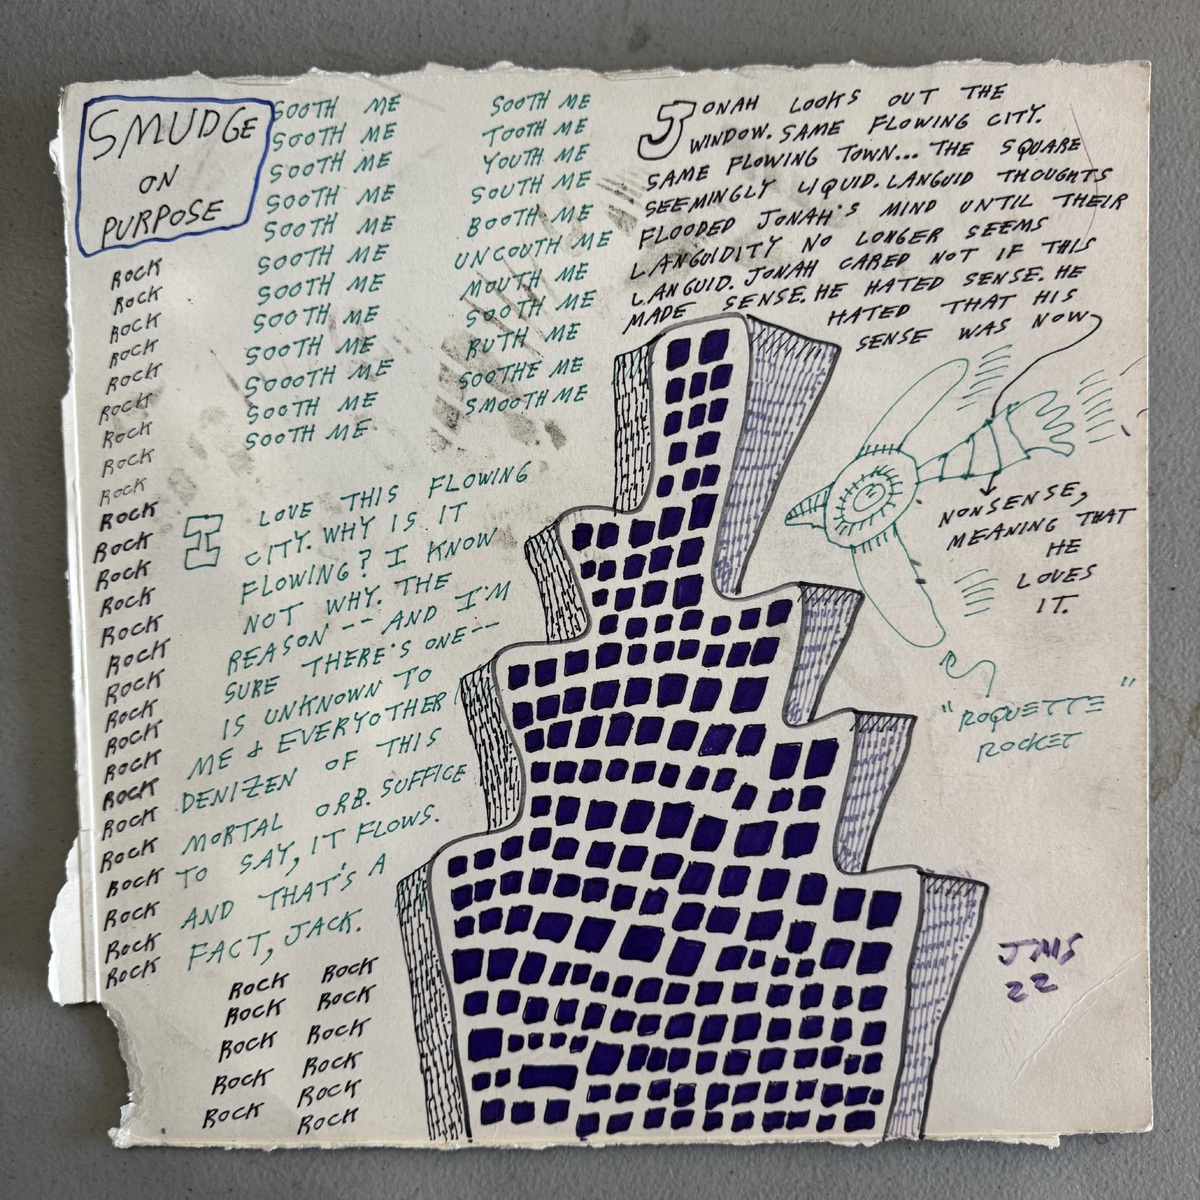 SMUDGE
ON
PURPOSE
ROCK
ROCK
ROCK
ROCK
ROCK
ROCK
ROCK
ROCK
ROCK
ROCK
ROCK
ROCK
ROCK
ROCK
ROCK
ROCK
ROCK
ROCK
ROCK
ROCK
ROCK
ROCK
ROCK
ROCK
ROCK
ROCK
SOOTH ME
SOOTH ME
SOOTH ME
SOOTH ME
SOOTH ME
SOOTH ME
SOOTH ME
SOOTH ME
SOOTH ME
SOOOTH ME
SOOTH ME
SOOTH ME
SOOTH ME
TOOTH ME
YOUTH ME
SOUTH ME
BOOTH ME
UNCOUTH ME
MOUTH ME
SOOTH ME
RUTH ME
SOOTHE ME
SMOOTH ME
I LOVE THIS FLOWING
CITY. WHY IS IT
FLOWING? I KNOW
NOT WHY. THE
REASON -- AND I'M
SURE THERE'S ONE --
IS UNKNOWN TO
ME & EVERYOTHER
DENIZEN OF THIS
MORTAL ORB. SUFFICE
TO SAY, IT FLOWS.
AND THAT'S A
FACT, JACK.
ROCK ROCK
ROCK ROCK
ROCK ROCK
ROCK ROCK
ROCK ROCK
ROCK
JONAH LOOKS OUT THE
WINDOW. SAME FLOWING CITY.
SAME FLOWING TOWN... THE SQUARE
SEEMINGLY LIQUID. LANGUID THOUGHTS
FLOODED JONAH'S MIND UNTIL THEIR
LANGUIDITY NO LONGER SEEMS
LANGUID. JONAH CARED NOT IF THIS
MADE SENSE. HE HATED SENSE. HE
HATED THAT HIS
SENSE WAS NOW
NONSENSE,
MEANING THAT
HE
LOVES
IT.
"ROQUETTE"
ROCKET
JMS
22